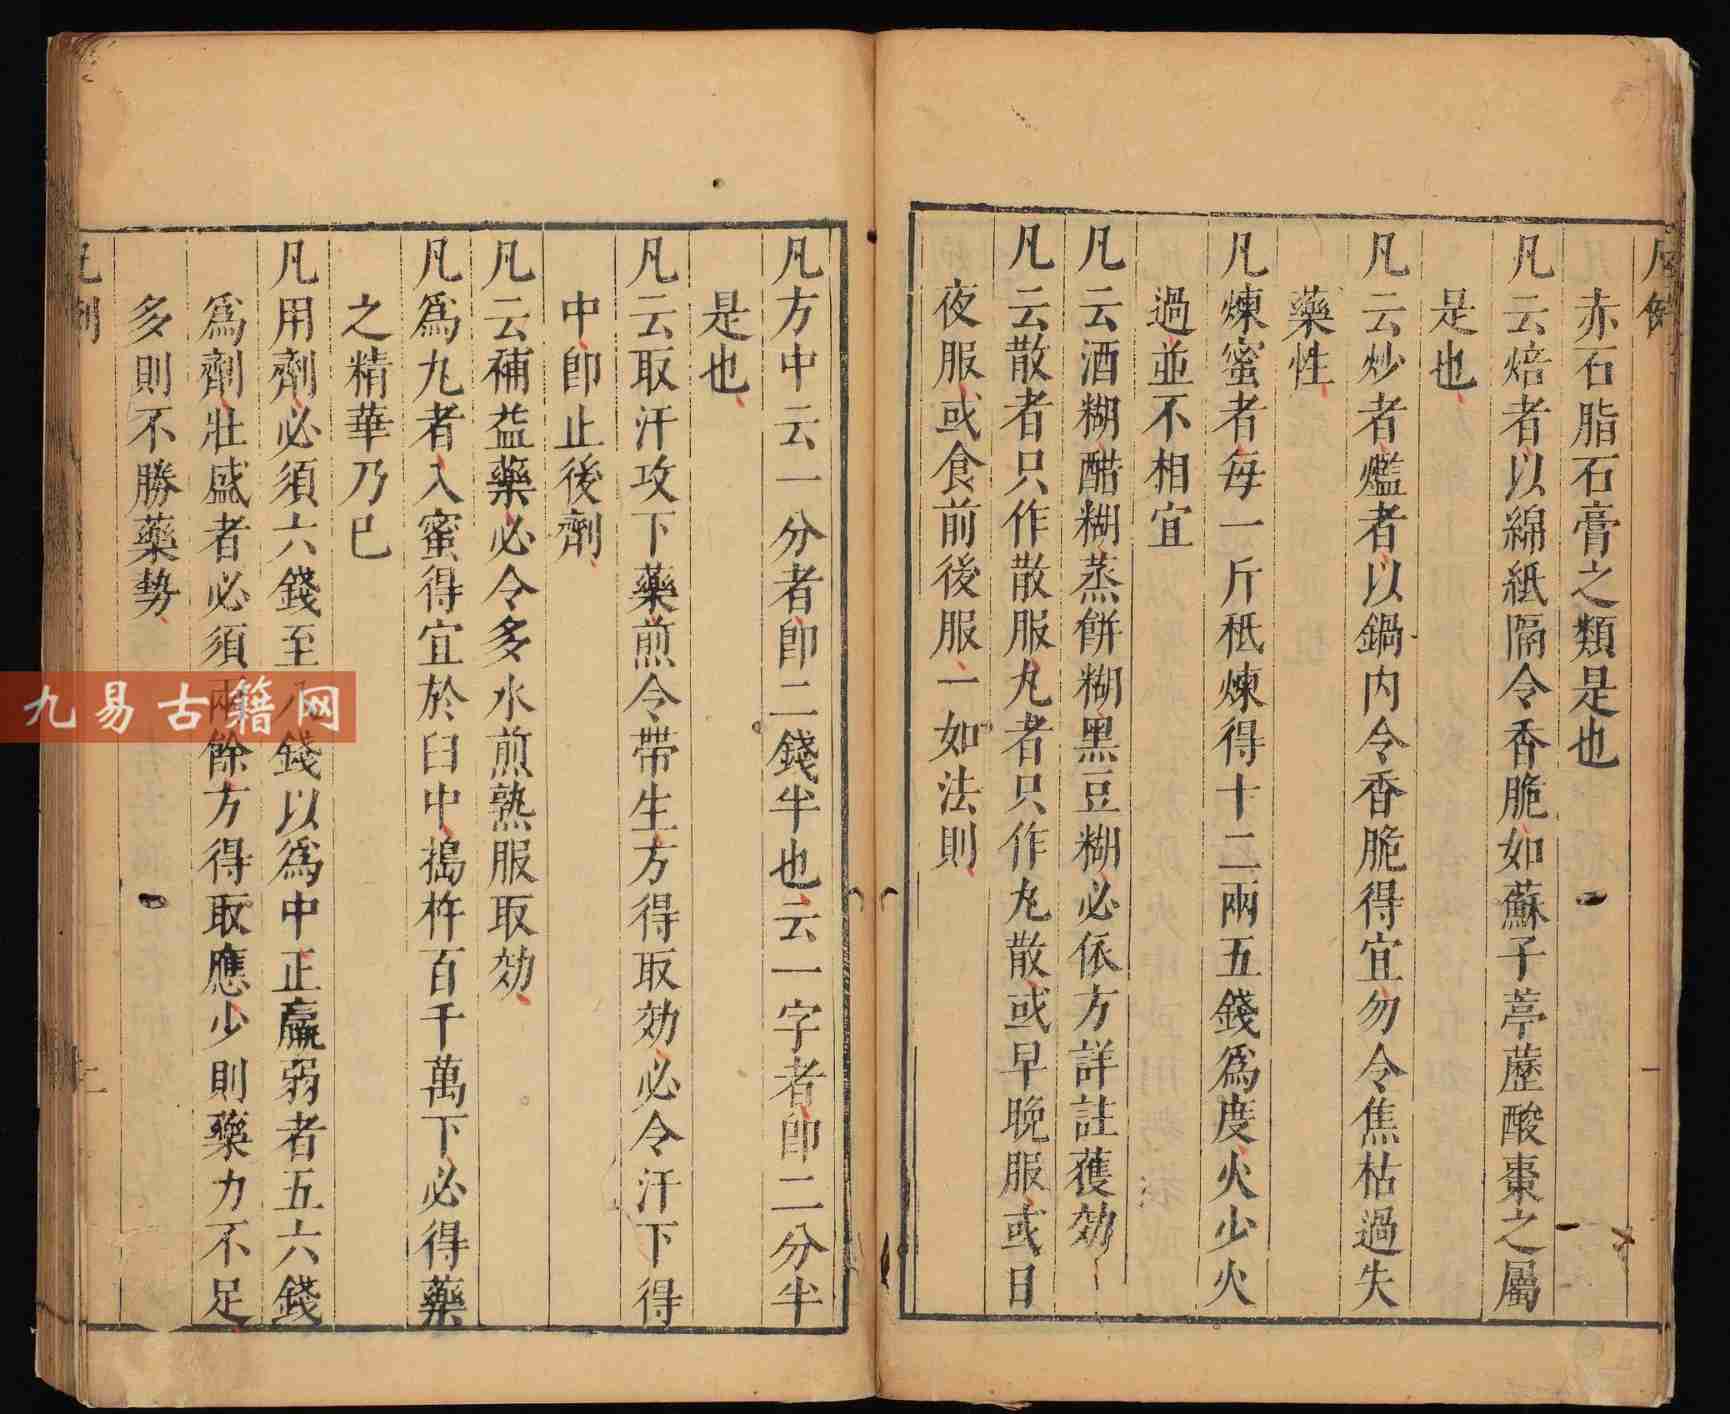 赤石脂石膏之類是也
凡云焙者以綿紙隔令香脆如蘇子葶藶酸棗之屬
是也
凡云炒者爁者以鍋内令香脆得宜勿令焦枯過失
藥性
凡煉蜜者每一斤秪煉得十二兩五錢爲度火少火
過並不相宜
凡云酒糊醋糊蒸餅糊黑豆糊必依方詳註獲効
凡云散者只作散服丸者只作丸散或早晚服或日
夜服或食前後服一如法則
凡方中云一分者卽二錢半也云一字者卽二分半
是也
凡云取汗攻下藥煎令帶生方得取効必令汗下得
中卽止後劑
凡云補益藥必令多水煎熟服取効
凡爲丸者入蜜得宜於臼中搗杵百千萬下必得藥
之精華乃已
凡用劑必須六錢至八錢以爲中正羸弱者五六錢
爲劑壯盛者必須兩餘方得取應少則藥力不足
多則不勝藥勢
九易古籍网